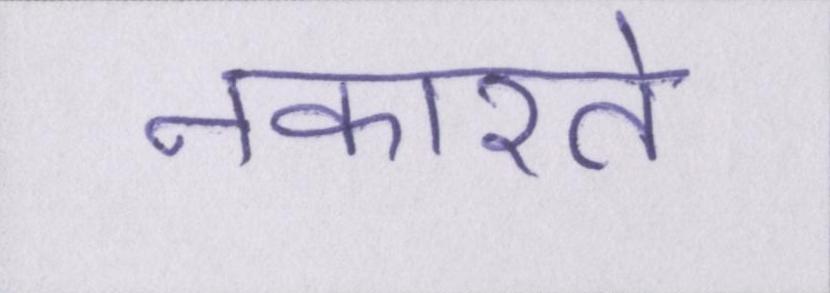 नकारते